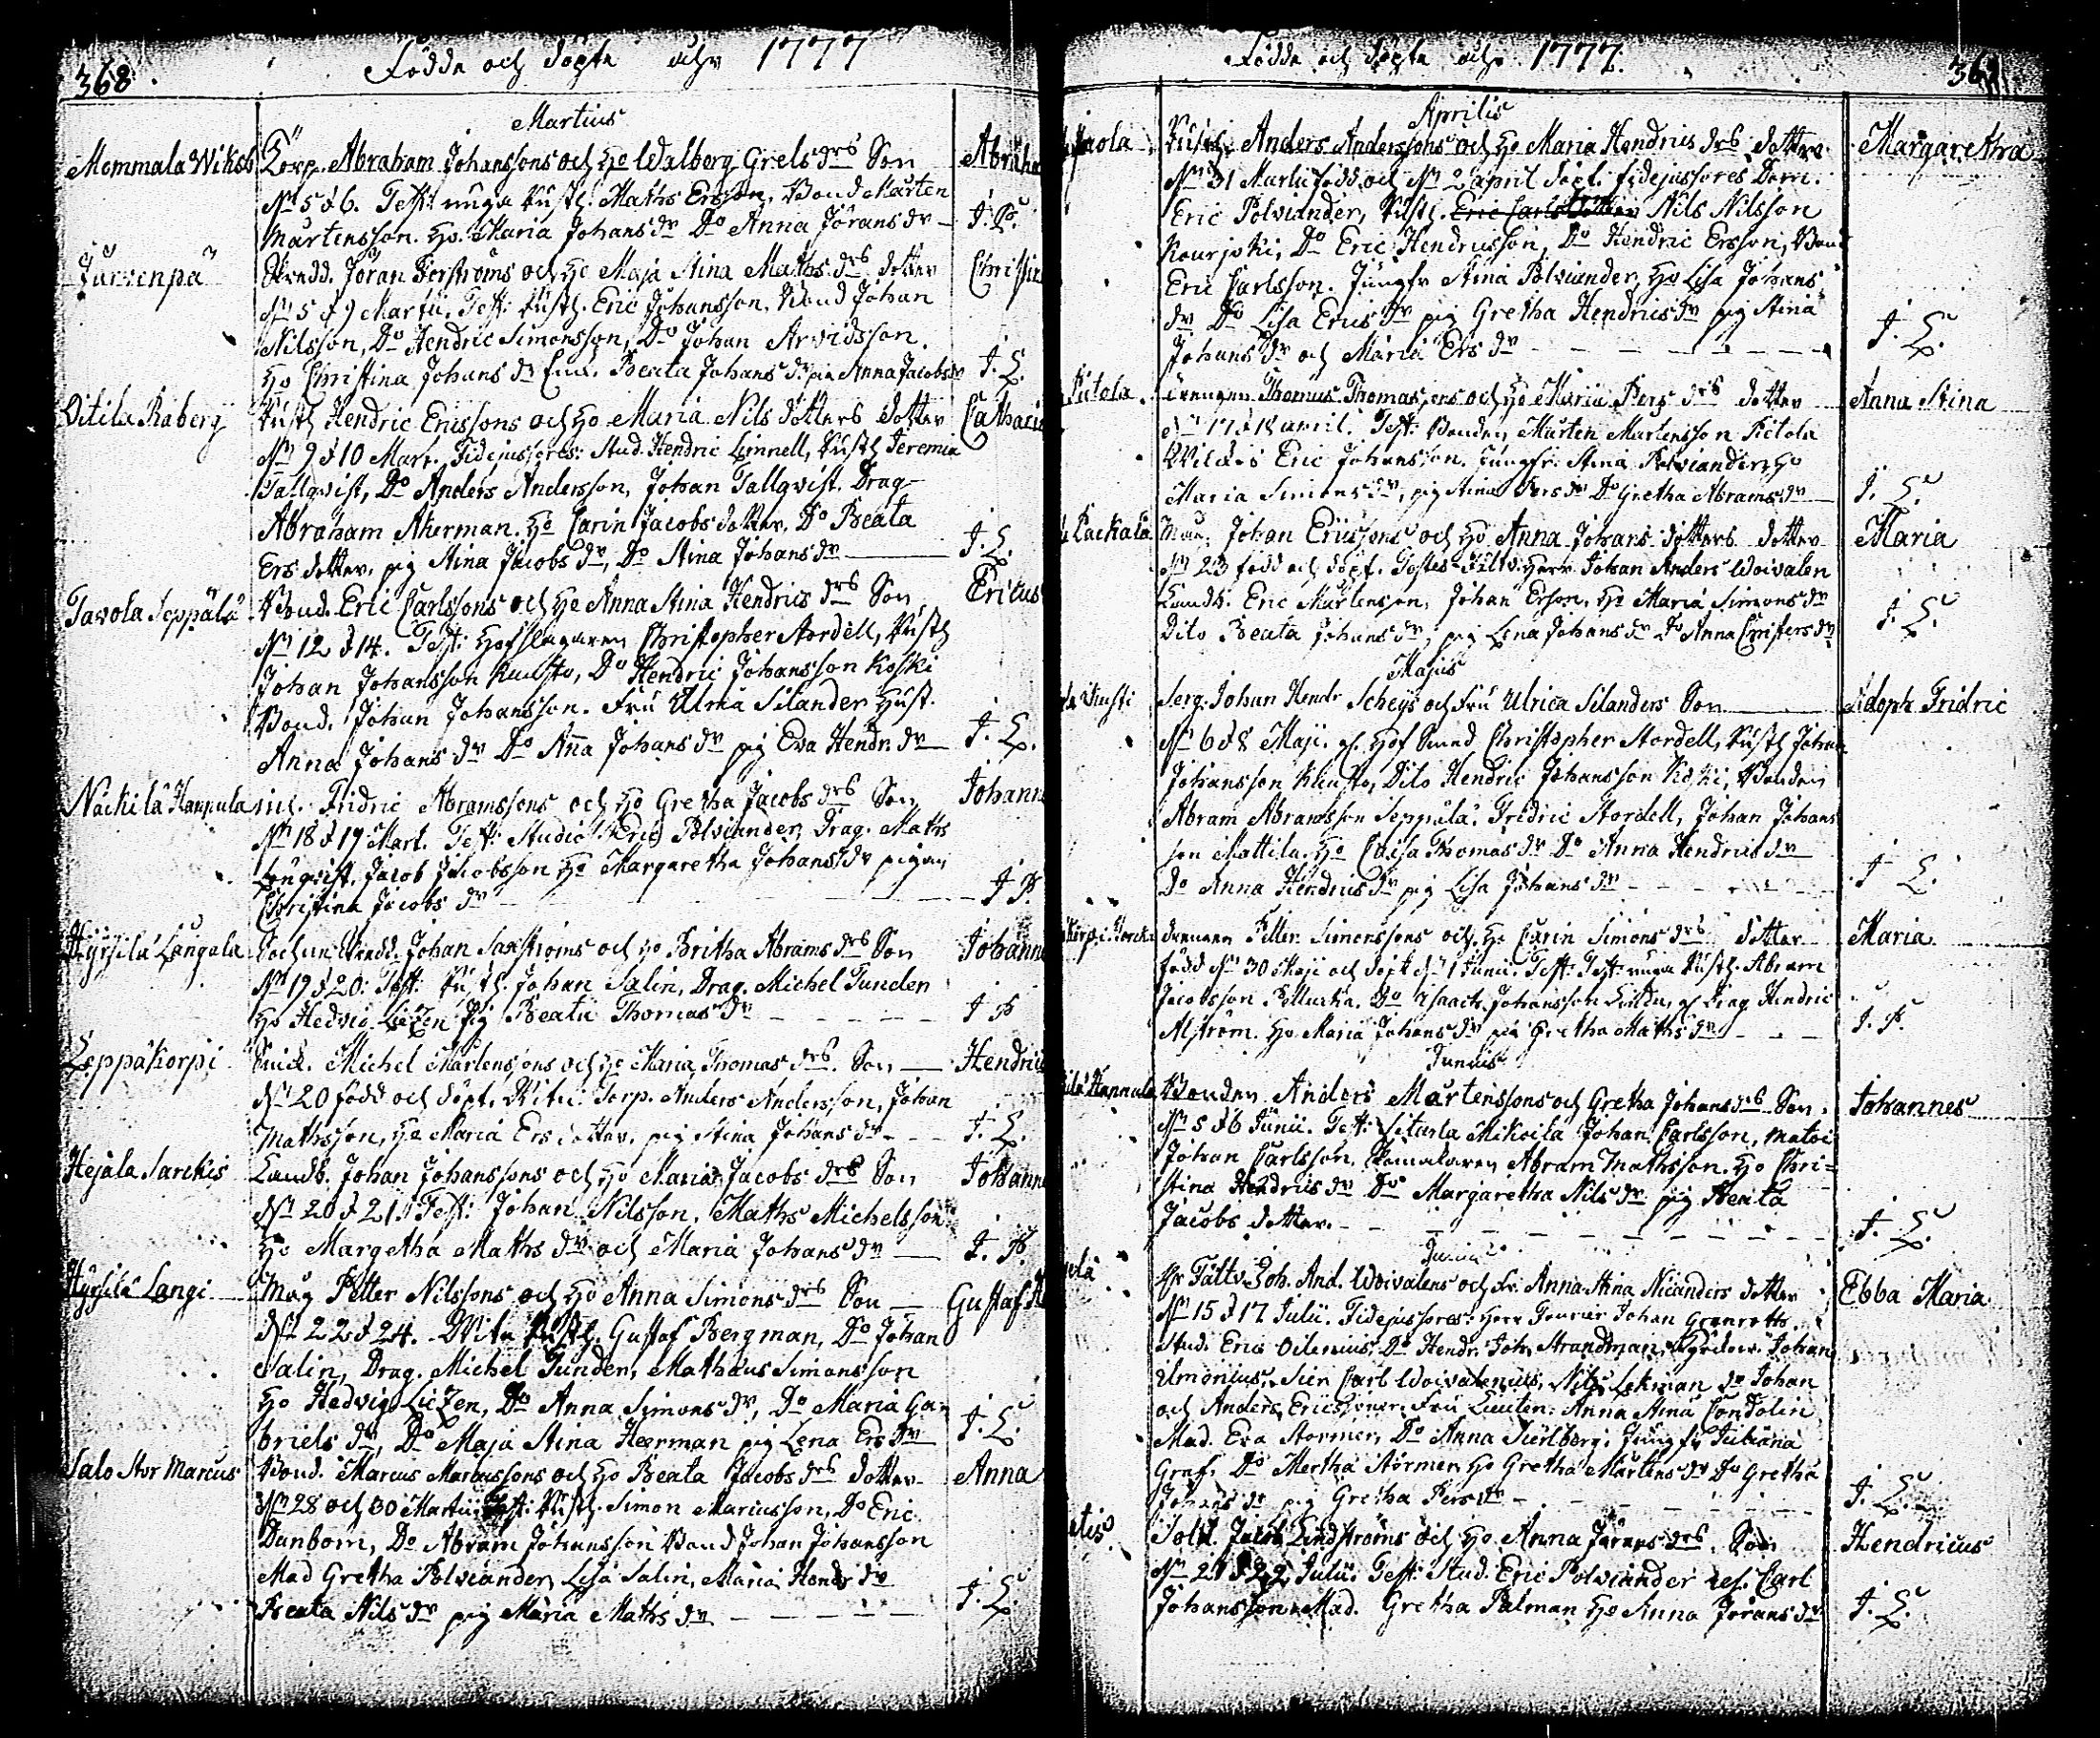 368.
Födde och döpte åhr 1777
Martius
Mommala Wiksb. Torp. Abraham Johanssons och Ho Walborg Grels drs Son Abraha
dn 5 d 6. Test: unga Rusth. Maths Ersson, Bond Mårten
Mårtensson. Ho. Maria Johans dr Do Anna Jörans dr - J. P.
Jurvenpä Skredd. Jöran Forströms och Ho Maja Stina Maths drs dotter Christin
dn 5 d 9 Martii. Test: Rusth. Eric Johansson. Bond Johan
Nilsson, Do Hendric Simonsson, Do Johan Arvidsson.
Ho Christina Johans dr Enk. Beata Johans dr pig Anna Jacobs dr J. L.
Oitila Raberg Rusth Hendric Ericssons och Ho Maria Nils dotters dotter Catharin
dn 9 d 10 Mart. Fidejussores: Stud. Hendric Limnell, Rusth Jeremia
Tallqvist, Do Anders Andersson, Johan Tallqvist. Drag-
Abraham Åkerman. Ho Carin Jacobs dotter, Do Beata
Ers dotter, pig Stina Jacobs dr, Do Stina Johans dr J. L.
Tavola Seppälä Bond. Eric Carlssons och Ho Anna Stina Hendrics drs Son Ericus
dn 12 d 14. Test: Hofslagaren Christopher Nordell, Rusth
Johan Johansson Kunsto, Do Hendric Johansson Koski
Bond. Johan Johansson. Fru Ulrica Silander Hust.
Anna Johans dr Do Anna Johans dr pig Eva Hendr. dr J. L.
Nackilä Hannula inh. Fridric Abramssons och Ho Gretha Jacobs drs Son Johann
dn 18 d 19 Mart. Test: Studios. Eric Polviander, Drag. Maths
Lönqvist, Jacob Jacobsson Ho Margaretha Johans dr pigan
Christina Jacobs dr - J. P.
Hyrsilä Långala Sochn. Skredd. Johan Saxströms och Ho Britha Abrams drs Son Johann
dn 19 d 20: Test: Rusth. Johan Salin, Drag. Michel Tunden
Ho Hedvig Liezen Pig Beata Thomas dr - J P
Leppäkorpi Smed. Michel Mårtenssons och Ho Maria Thomas drs. Son Hendric
dn 20 född och döpt. Witn: Torp. Anders Andersson, Johan
Mathsson, Ho Maria Ers dotter. pig Stina Johans dr - J. L.
Hejäla Sarckis Landb. Johan Johanssons och Ho Maria Jacobs drs Son Johann
dn 20 d 21. Test: Johan Nilsson, Maths Michelsson
Ho Margetha Maths dr och Maria Johans dr J. P.
Hyrsilä Langi Måg Petter Nilssons och Ho Anna Simons drs Son Gustaf A
dn 22 d 24. Witn Rusth. Gustaf Bergman, Do Johan
Salin, Drag. Michel Tunden, Mathæus Simonsson
Ho Hedvig Liezen, Do Anna Simons dr, Do Maria Ga-
briels dr, Do Maja Stina Heerman pig Lena Ers dr J. L.
Salo Stor Marcus Bond. Marcus Marcussons och Ho Beata Jacobs drs dotter Anna
dn 28 och 30 Martii Test: Rusth. Simon Marcusson, Do Eric
Danbom, Do Abram Johansson Bond Johan Johansson
Mad Gretha Polviander, Lisa Salin, Maria Hendr dr
Beata Nils dr pig Maria Maths dr - J. L.
Födde och döpte åhr 1777. 369
Aprilis
Rusth. Anders Anderssons och Ho Maria Hendrics drs dotter. Margaretha
dn 31 Martii född och dn 2 april döpt. fidejussores Dom.
Eric Polviander, Rusth. Nils Nilsson
Kourjoki, Do Eric Hendricsson, Do Hendric Ersson, Bond
Eric Carlsson. Jungfr Stina Polviander, Ho Lisa Johans
dr Do Lisa Erics dr pig Gretha Hendrics dr pig Stina
Johans dr och Maria Ers dr - J. L.
Pietola. Drengen Thomas Thomassons och Ho Maria Pers drs dotter Anna Stina
dn 17 d 18 april. Test: Bonden Mårten Mårtensson Pietola
Eric Johansson. Jungfr. Stina Polviander, Ho
Maria Simons dr, pig Stina Pers dr Do Gretha Abrams dr J. L.
Packala Måg. Johan Ericssons och Ho Anna Johans dotters dotter Maria
dn 23 född och döpt. Testes Fältv. Herr Johan Anders Woivalen
Landb. Eric Mårtensson, Johan Erson, Ho Maria Simons dr
Dito Beata Johans dr, pig Lena Johans dr Do Anna Christers dr J. L.
Majus
Serg. Johan Hendr Scheys och Fru Ulrica Silanders Son Adoph Fridric
dn 6 d 8 Maji. gl. Hof Smed Christopher Nordell, Rusth Johan
Johansson Kunsto, Dito Hendric Johansson Koski, Bonden
Abram Abramsson Seppälä. Fredric Nordell, Johan Johans
son Mattila. Ho Caisa Thomas dr Do Anna Hendrics dr
Do Anna Hendrics dr pig Lisa Johans dr - J L.
Drengen Petter Simonssons och Ho Carin Simons drs dotter Maria.
född dn 30 Maji och döpt dn 1 Junii. Test: unga Rusth. Abram
Jacobsson Do Isaach Johansson gl Drag Hendric
Alström. Ho Maria Johans dr pig Gretha Maths dr - J. P.
Junius
Hannula Bonden Anders Mårtenssons och Gretha Johans drs Son. Johannes
dn 5 d 6 Junii. Test: Sitarla Mikoila Johan Carlsson, Matoi
Johan Carlsson. Skomakaren Abram Mathsson. Ho Chri-
stina Hendrics dr Do Margaretha Nils dr pig Beata
Jacobs dotter. - J. L.
Julius
Hr Fältv. Joh. And. Woivalens och Fr. Anna Stina Nicanders dotter Ebba Maria
dn 15 d 17 Julii. Fidejussores: Herr Fourier Johan Grenroth.
Stud. Eric Oilenius, Do Hendr. Joh. Strandman, Johan
Limonius, Sier Carl Woivalenius, Nils Lekman Do Johan
och Anders Ericssoner. Fru Lieuten: Anna Stina Condolin
Mad. Eva Stormer, Do Anna Sierlberg. Jungfr Juliana
Graf. Do Mertha Störmer, Ho Gretha Mårtens dr Do Gretha
Johans dr pig Gretha Pers dr - J. L.
Sold. Jacob Lindströms och Ho Anna Jörans drs. Son Hendricus
dn 21 d 22 Julii. Test: Stud. Eric Polviander res. Carl
Johansson. Mad. Gretha Palman Ho Anna Jörans dr J. L.